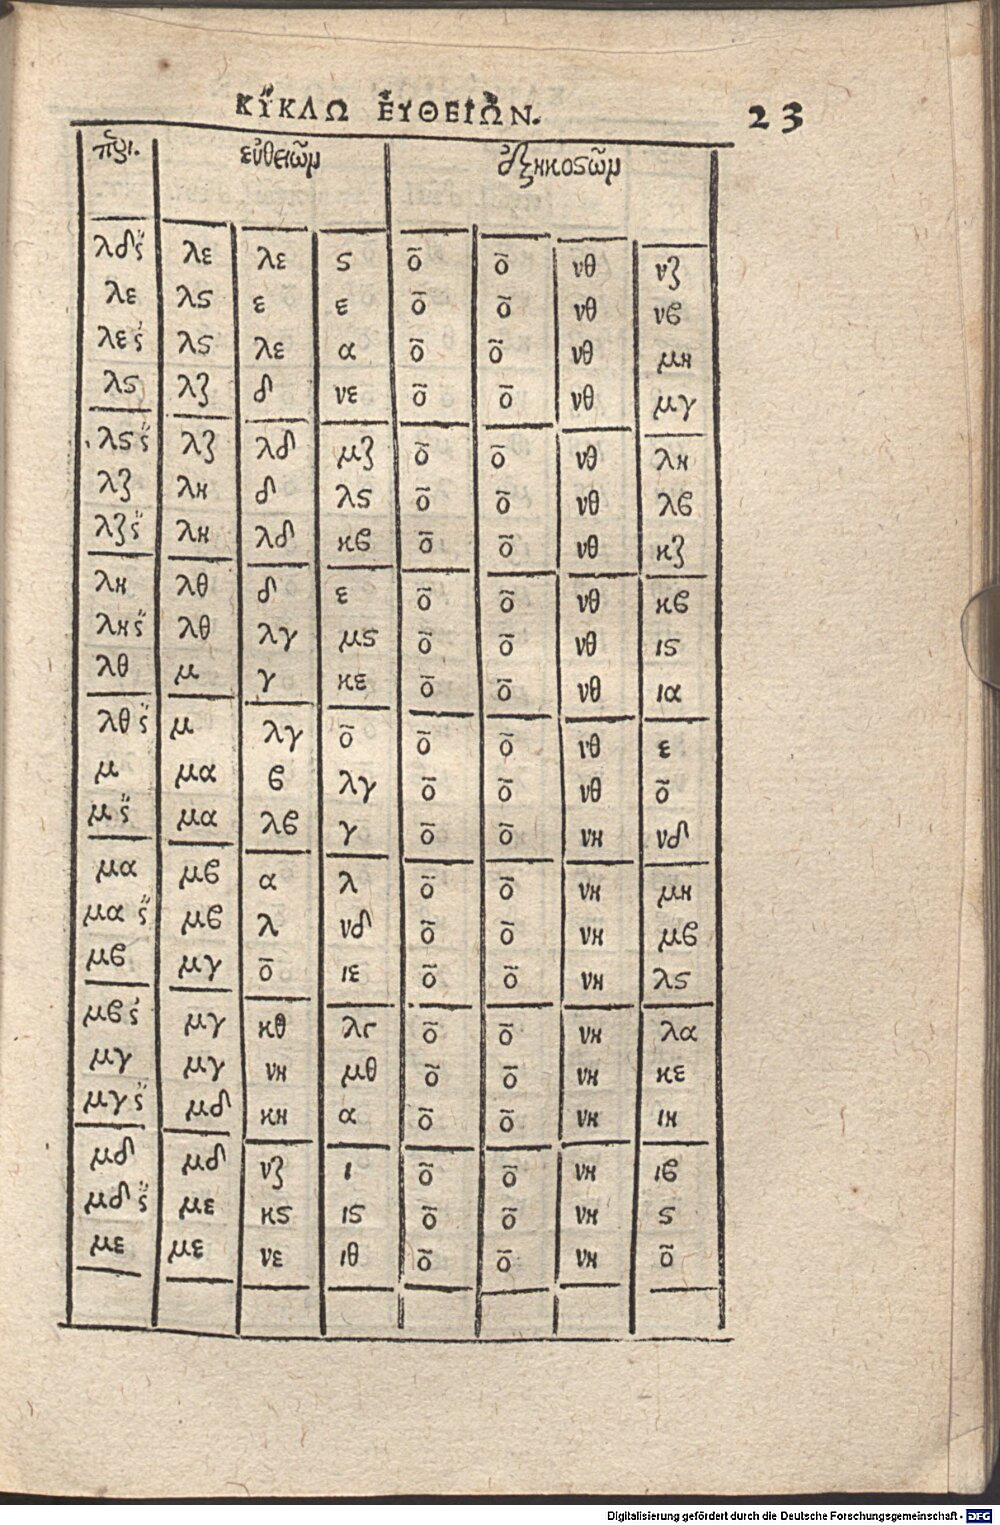 ΚΥ̓́ΚΛΩ ΕΥ̓ΘΕΙΩ͂Ν. 23
εὐθειῶμ ἑξηκοϛῶμ
λδ ϛ̋ λε λε ϛ ο̄ ο̄ νθ νζ
λε λϛ ε ε ο̄ ο̄ νθ νϐ
λε ϛ̋ λϛ λε α ο̄ ο̄ νθ μη
λϛ λζ δ νε ο̄ ο̄ νθ μγ
λϛ ϛ̋ λζ λδ μζ ο̄ ο̄ νθ λη
λζ λη δ λϛ ο̄ ο̄ νθ λϐ
λζ ϛ̋ λη λδ κϐ ο̄ ο̄ νθ κζ
λη λθ δ ε ο̄ ο̄ νθ κϐ
λη ϛ̋ λθ λγ μϛ ο̄ ο̄ νθ ιϛ
λθ μ γ κε ο̄ ο̄ νθ ια
λθ ϛ̋ μ λγ ο̄ ο̄ ο̄ ιθ ε
μ μα ϐ λγ ο̄ ο̄ νθ ο̄
μ ϛ̋ μα λϐ γ ο̄ ο̄ νη νδ
μα μϐ α λ ο̄ ο̄ νη μη
μα ϛ̋ μϐ λ νδ ο̄ ο̄ νη μϐ
μϐ μγ ο̄ ιε ο̄ ο̄ νη λϛ
μϐ ϛ̋ μγ κθ λϛ ο̄ ο̄ νη λα
μγ μγ νη μθ ο̄ ο̄ νη κε
μγ ϛ̋ μδ κη α ο̄ ο̄ νη ιη
μδ μδ νζ ι ο̄ ο̄ νη ιϐ
μδ ϛ̋ με κϛ ιϛ ο̄ ο̄ νη ϛ
με με νε ιθ ο̄ ο̄ νη ο̄
Digitalisierung gefördert durch die Deutsche Forschungsgemeinschaft - DFG